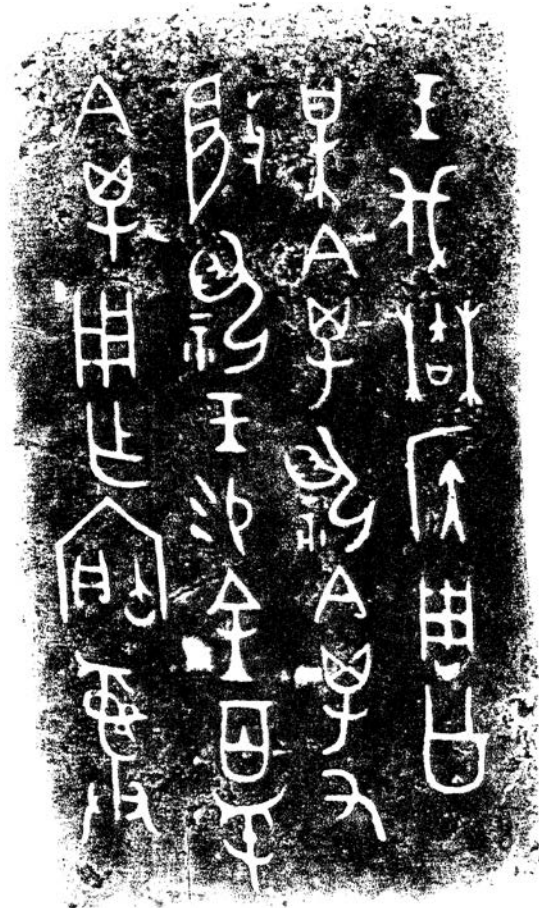 王伐蓋侯周公
某禽祝禽又
祝王易金百寽
禽用乍寶彝